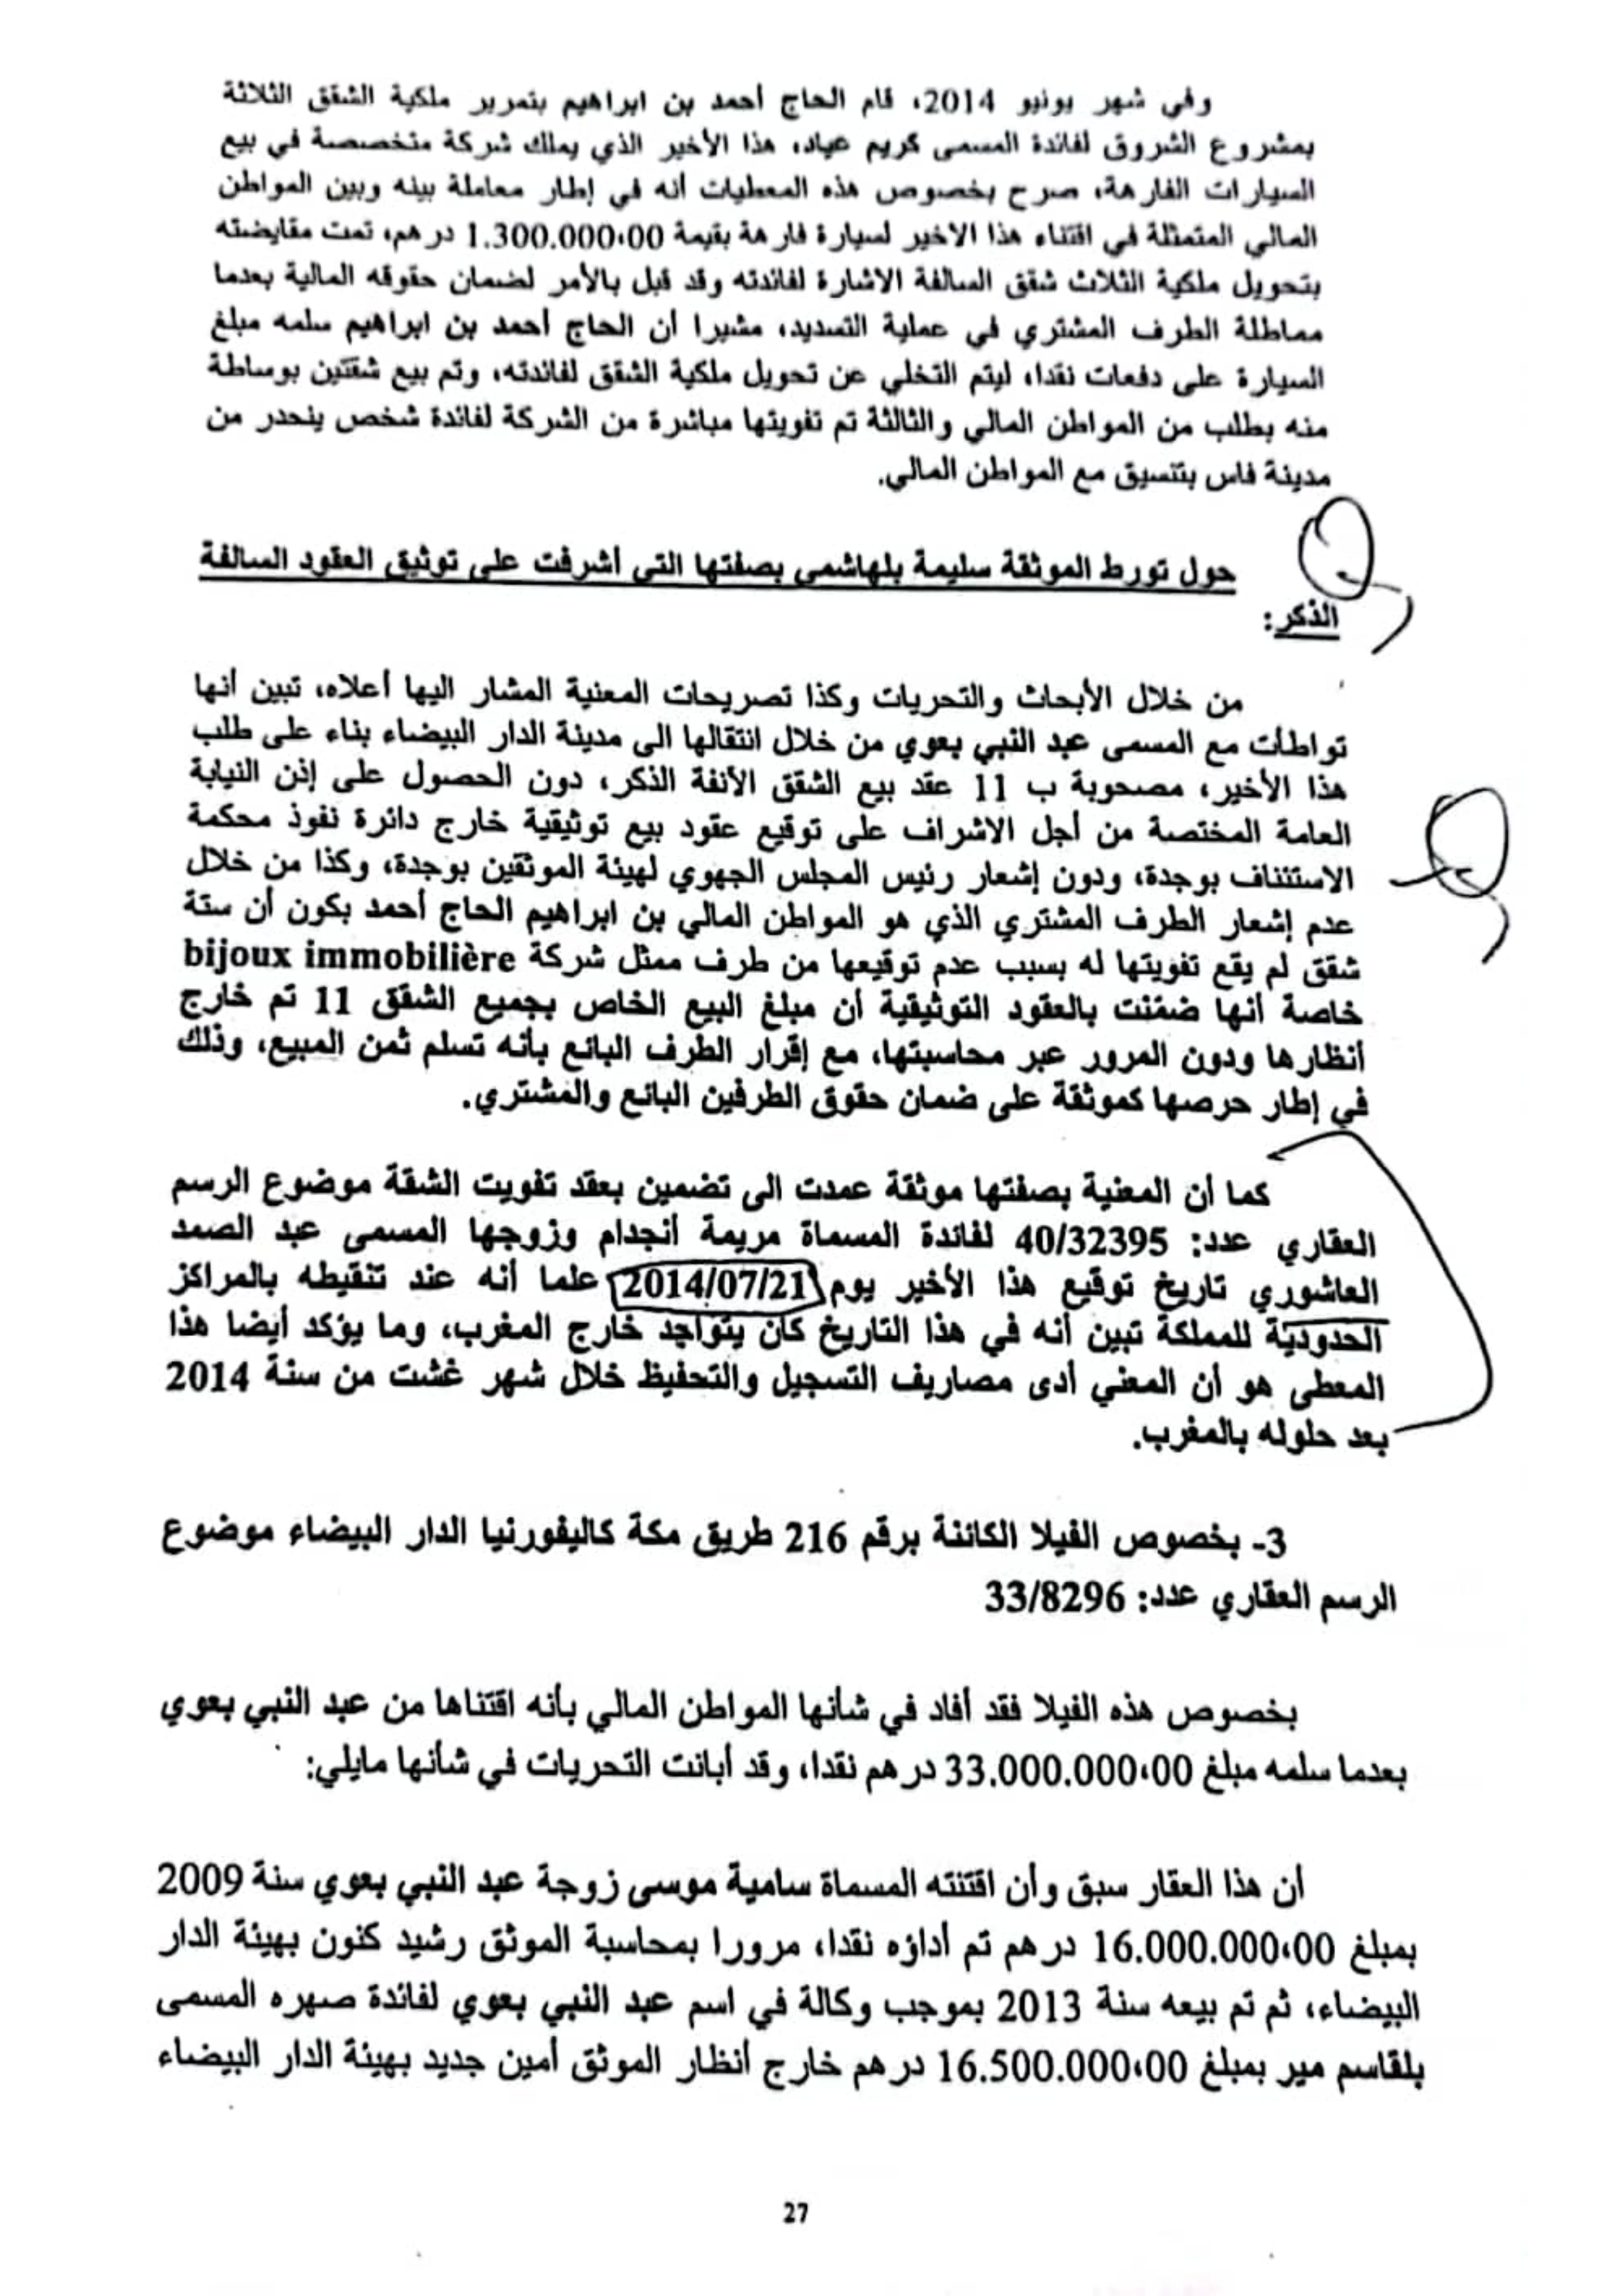 وفي شهر يونيو 2014، قام الحاج أحمد بن ابراهيم بتمرير ملكية الشقق الثلاثة
بمشروع الشروق لفائدة المسمى كريم عياد، هذا الأخير الذي يملك شركة متخصصة في بيع
السيارات الفارهة، صرح بخصوص هذه المعطيات أنه في إطار معاملة بينه وبين المواطن
المالي المتمثلة في اقتناء هذا الاخير لسيارة فارهة بقيمة 1.300.000،00 درهم، تمت مقايضته
بتحويل ملكية الثلاث شقق السالفة الاشارة لفائدته وقد قبل بالأمر لضمان حقوقه المالية بعدما
مماطلة الطرف المشتري في عملية التسديد، مشيرا أن الحاج أحمد بن ابراهيم سلمه مبلغ
السيارة على دفعات نقدا، ليتم التخلي عن تحويل ملكية الشقق لفائدته، وتم بيع شقتين بوساطة
منه بطلب من المواطن المالي والثالثة تم تفويتها مباشرة من الشركة لفائدة شخص ينحدر من
مدينة فاس بتنسيق مع المواطن المالي.
حول تورط الموثقة سليمة بلهاشمي بصفتها التي أشرفت على توثيق العقود السالفة
الذكر:
من خلال الأبحاث والتحريات وكذا تصريحات المعنية المشار اليها أعلاه، تبين أنها
تواطأت مع المسمى عبد النبي بعوي من خلال انتقالها الى مدينة الدار البيضاء بناء على طلب
هذا الأخير، مصحوبة ب 11 عقد بيع الشقق الأنفة الذكر، دون الحصول على إذن النيابة
العامة المختصة من أجل الاشراف على توقيع عقود بيع توثيقية خارج دائرة نفوذ محكمة
الاستئناف بوجدة، ودون إشعار رئيس المجلس الجهوي لهيئة الموثقين بوجدة، وكذا من خلال
عدم إشعار الطرف المشتري الذي هو المواطن المالي بن ابراهيم الحاج أحمد بكون أن ستة
شقق لم يقع تفويتها له بسبب عدم توقيعها من طرف ممثل شركة bijoux immobilière
خاصة أنها ضمّنت بالعقود التوثيقية أن مبلغ البيع الخاص بجميع الشقق 11 تم خارج
أنظارها ودون المرور عبر محاسبتها، مع إقرار الطرف البائع بأنه تسلم ثمن المبيع، وذلك
في إطار حرصها كموثقة على ضمان حقوق الطرفين البائع والمشتري.
كما أن المعنية بصفتها موثقة عمدت الى تضمين بعقد تفويت الشقة موضوع الرسم
العقاري عدد: 40/32395 لفائدة المسماة مريمة أنجدام وزوجها المسمى عبد الصمد
العاشوري تاريخ توقيع هذا الأخير يوم 2014/07/21 علما أنه عند تنقيطه بالمراكز
الحدودية للمملكة تبين أنه في هذا التاريخ كان يتواجد خارج المغرب، وما يؤكد أيضا هذا
المعطى هو أن المعني أدى مصاريف التسجيل والتحفيظ خلال شهر غشت من سنة 2014
بعد حلوله بالمغرب.
3- بخصوص الفيلا الكائنة برقم 216 طريق مكة كاليفورنيا الدار البيضاء موضوع
الرسم العقاري عدد: 33/8296
بخصوص هذه الفيلا فقد أفاد في شأنها المواطن المالي بأنه اقتناها من عبد النبي بعوي
بعدما سلمه مبلغ 33.000.000،00 درهم نقدا، وقد أبانت التحريات في شأنها مايلي:
أن هذا العقار سبق وأن اقتنته المسماة سامية موسى زوجة عبد النبي بعوي سنة 2009
بمبلغ 16.000.000،00 درهم تم أداؤه نقدا، مرورا بمحاسبة الموثق رشيد كنون بهيئة الدار
البيضاء، ثم تم بيعه سنة 2013 بموجب وكالة في اسم عبد النبي بعوي لفائدة صهره المسمى
بلقاسم مير بمبلغ 16.500.000،00 درهم خارج أنظار الموثق أمين جديد بهيئة الدار البيضاء
27